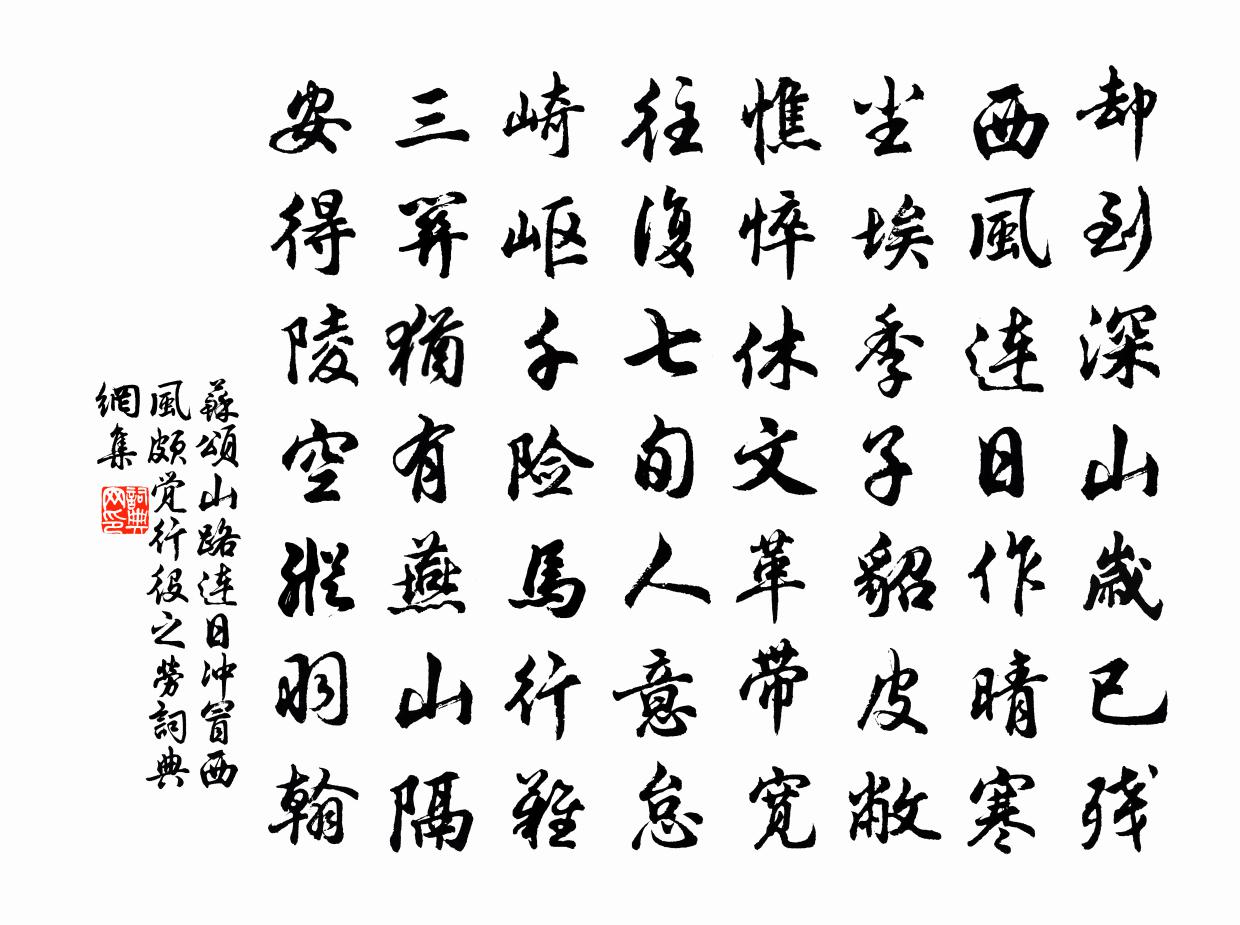 却到深山歲已残
西風連日作晴寒
尘埃季子貂皮敝
憔悴休文革带宽
往復七旬人意怠
崎岖千险馬行難
三关猶有燕山隔
安得陵空縱羽翰
蘇頌山路連日沖冒西
風頗觉行役之勞詞典
網集
詞典
网印